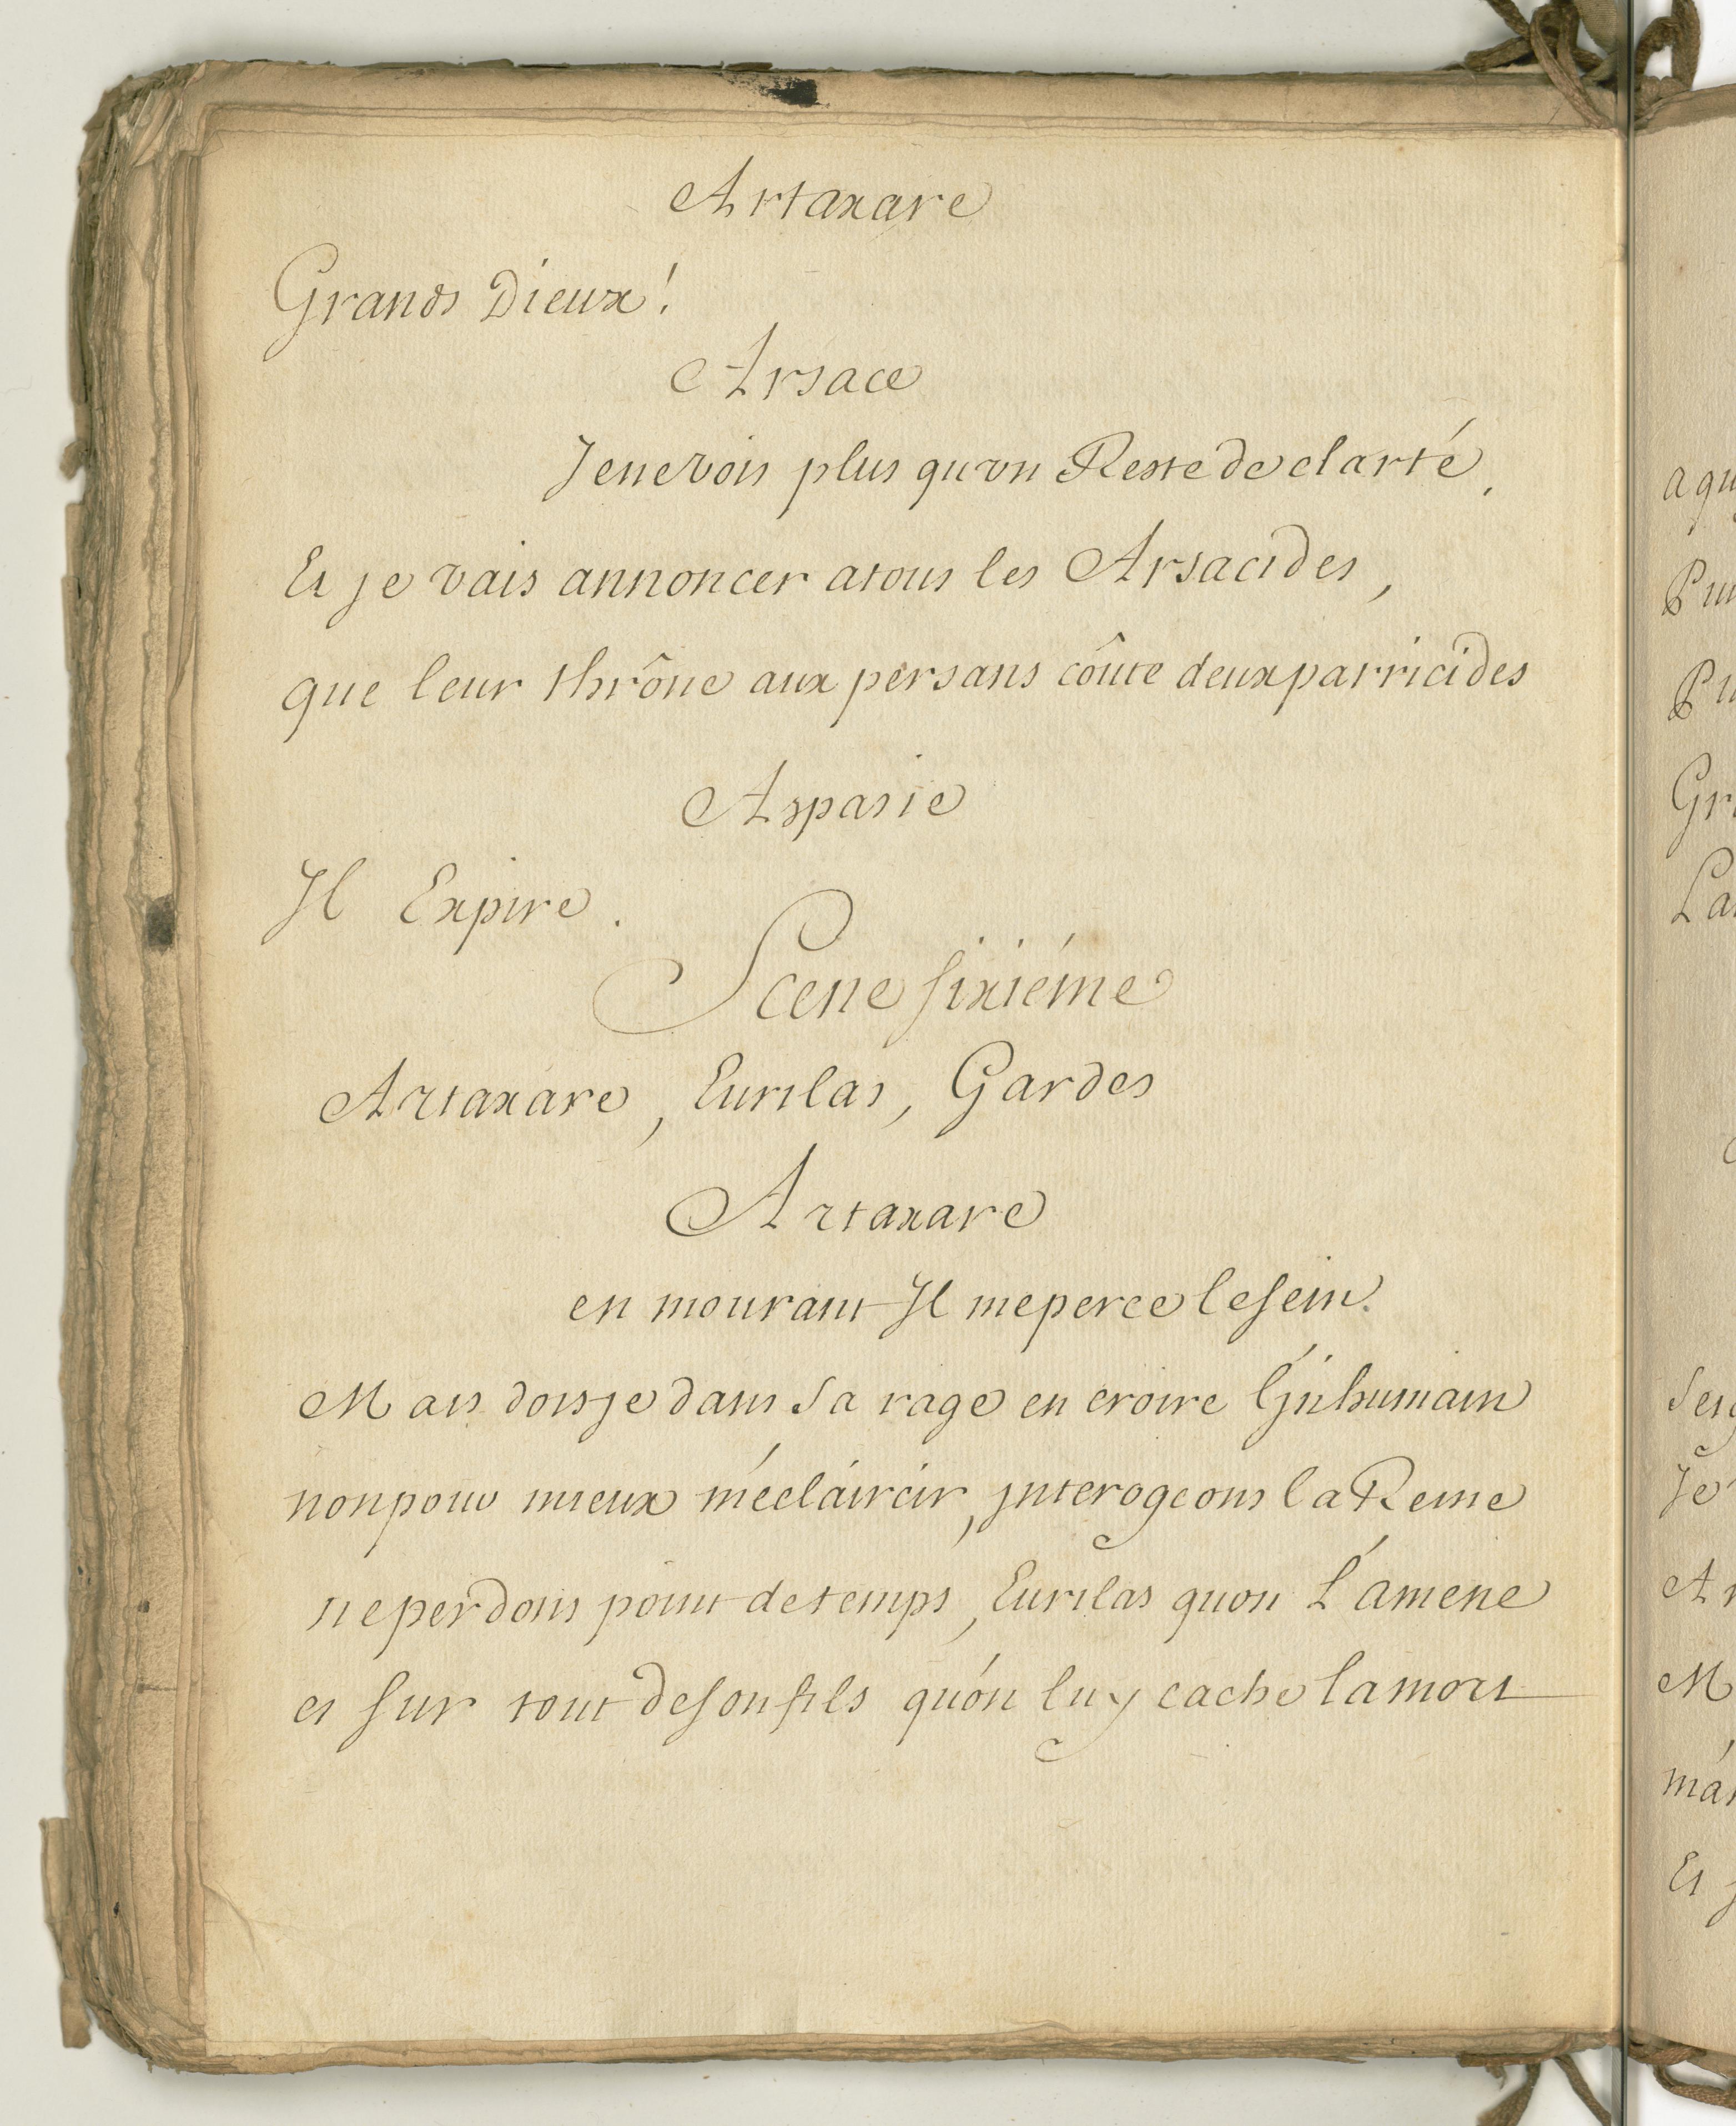 Artaxare
Grands Dieux!
Arsace
Je ne vois plus qu'vn Reste de clarté,
Et je vais annoncer a tous les Arsacides,
que leur thrône aux persans côute deux parricides
Aspasie
Il Expire.
Scene sixiéme
Artaxare, Eurilas, Gardes
Artaxare
en mourant Il me perce le sein.
Mais dois je dans sa rage en croire l'inhumain
non pour mieux m'eclaircir, jnterogeons la Reine
ne perdons point de temps, Eurilas quon L'amene
et sur tout de son fils qu'on luy cache la mort
a qu
Pui
Pu
Gr
La
Seig
Je
Ar
M
m'a
Et j